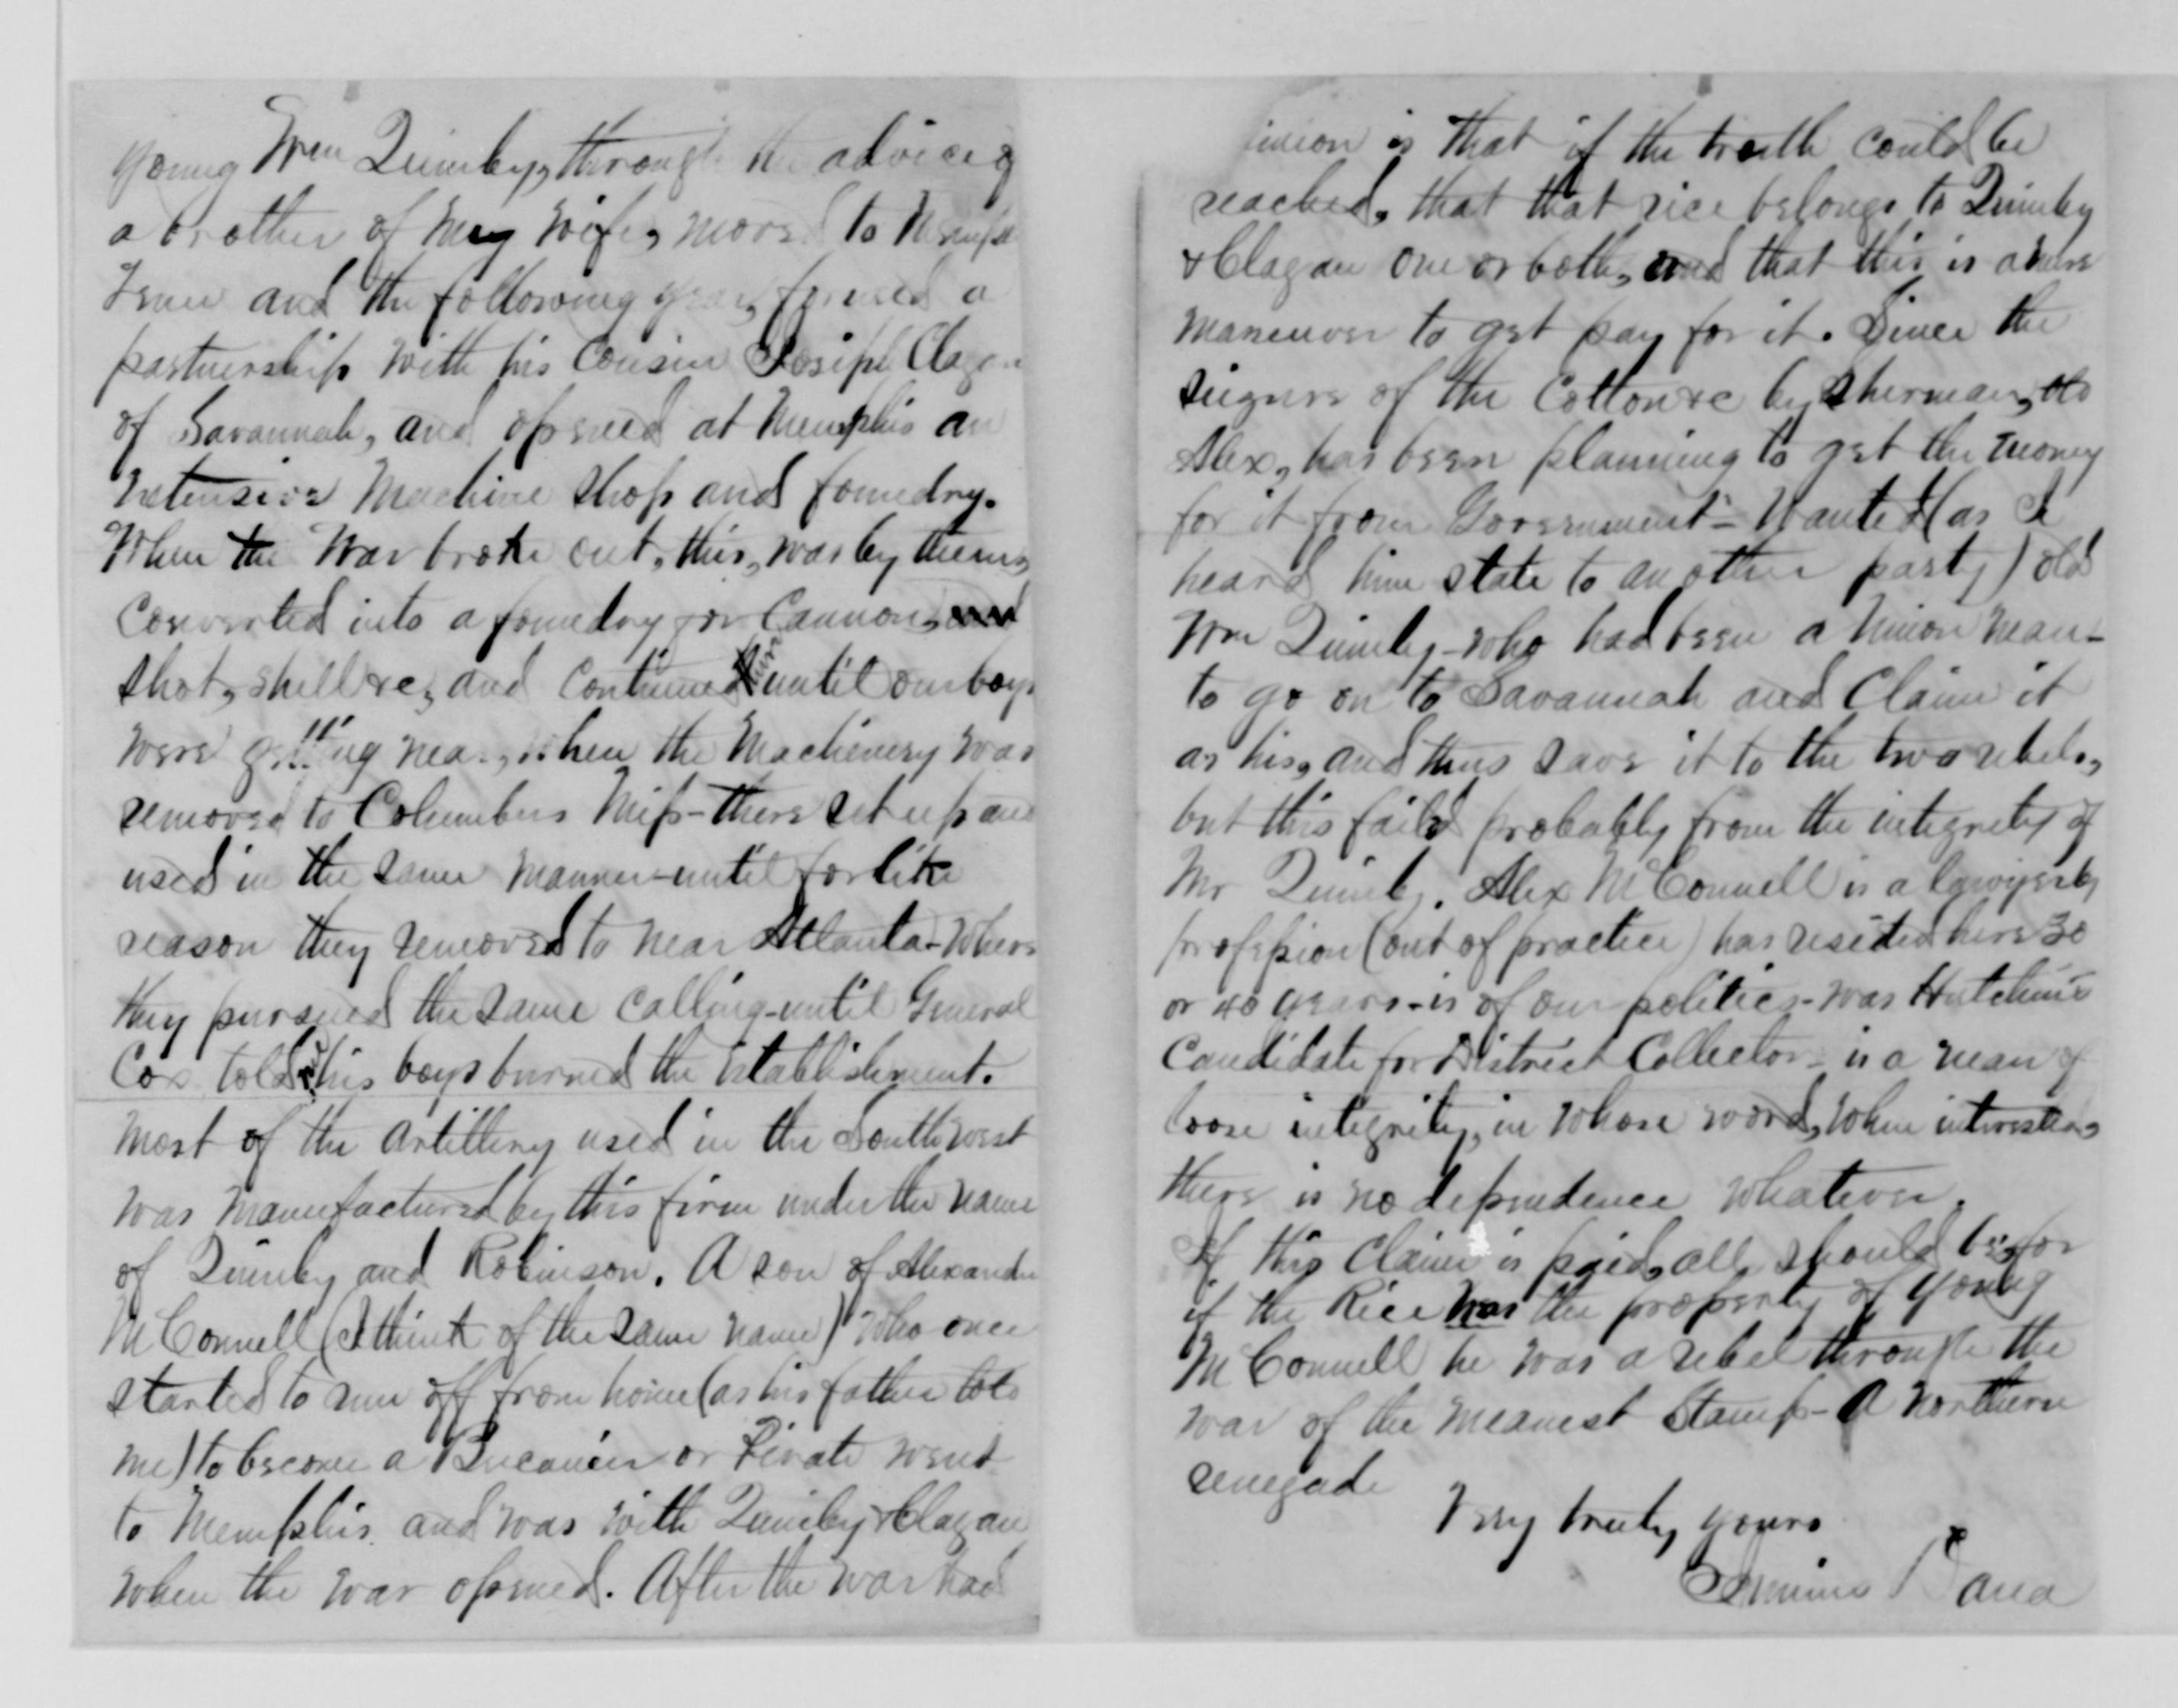 young Wm Quimby, through the advice of
a brother of my wife, moved to Memphis
Tenn and the following year, formed a
partnership with his cousin Joseph Clagan
of Savannah, and opened at Memphis an
extensive Machine shop and foundry.
When the War broke out, this, was by them,
converted into a foundry for Cannon,
shot, shell &c, and continued until our boys
were getting near, when the Machinery was
removed to Columbus Miss - there set up and
used in the same manner - until for like
reason they removed to near Atlanta - where
they pursued the same calling - until General
Cox told me his boys burned the establishment.
Most of the artillery used in the South west
was manufactured by this firm under the name
of Quimby and Robinson. A son of Alexander
McConnell (I think of the same name) who once
started to run off from home (as his father told
me) to become a Bucanier or Pirate went
to Memphis and was with Quimby & Clagan
when the war opened. After the war had
inion is that if the truth could be
reached, that that rice belongs to Quimby
& Clagan one or both, and that this is a mere
maneuver to get pay for it. Since the
siezure of the Cotton &c by Sherman, old
Alex, has been planning to get the money
for it from Government - Wanted (as I
heard him state to another party) old
Wm Quimby - who had been a Union man -
to go on to Savannah and Claim it
as his, and thus save it to the two rebels,
but this faild probably from the integrity of
Mr Quimby. Alex McConnell is a lawyer by
profession (out of practice) has resided here 30
or 40 years - is of our politics - was Hutchins
Candidate for District Collector - is a man of
loose integrity, in whose word, when interested,
there is no dependence whatever.
If this Claim is paid, all should be, for
if the Rice was the property of young
McConnell he was a rebel through the
war of the meanest stamp - A northern
renegade
Very truly yours
Junius Dana